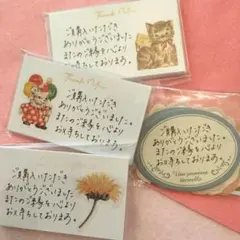 Thank You
ご購入いただき
ありがとうございました
またのご縁を心より
お待ちしております。
Thank You
ご購入いただき
ありがとうございました
またのご縁を心より
お待ちしております。
ご購入いただき
ありがとうございました
またのご縁を心より
お待ちしております。
ご購入いただき
ありがとうございました
またのご縁を心より
お待ちしております。